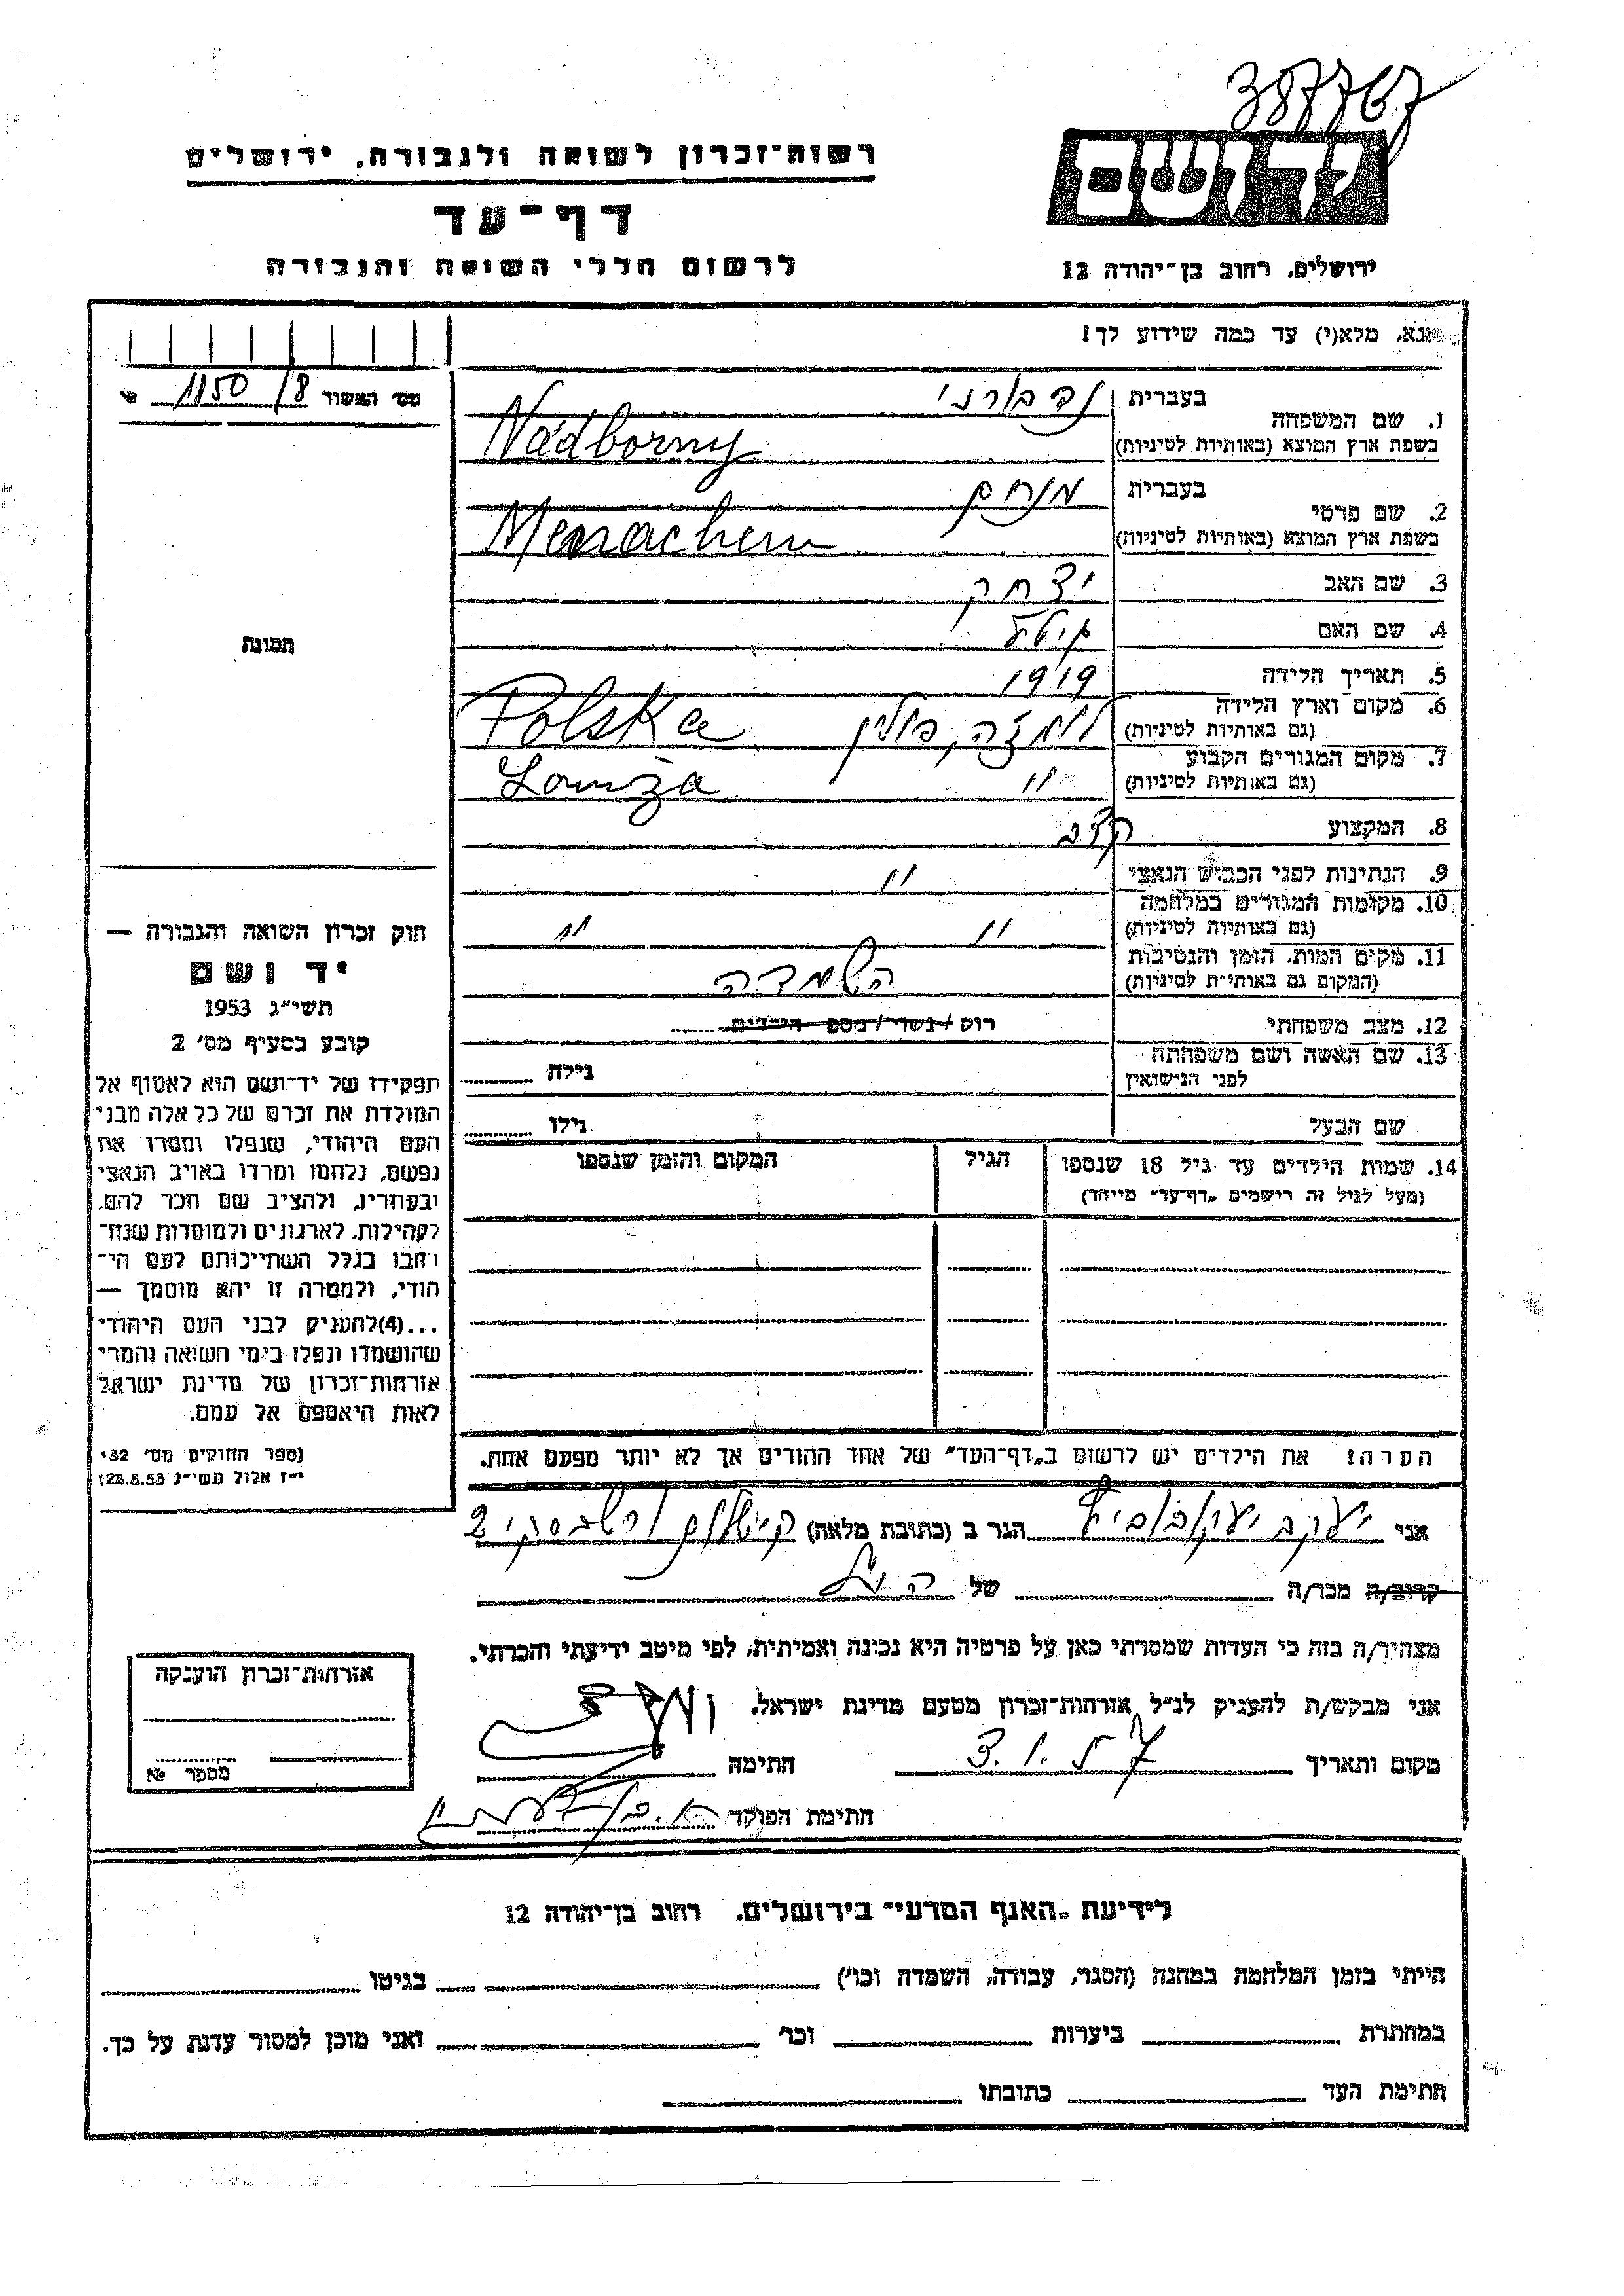 387767
יד ושם
ירושלים, רחוב בן־יהודה 12
רשות־זכרון לשואה ולגבורה, ירושלים
דף־עד
לרשום חללי השואה והגבורה
אנא, מלא(י) עד כמה שידוע לך!
מס' האשור 8/ 1150
1. שם המשפחה
בעברית נדבורני
בשפת ארץ המוצא (באותיות לטיניות) Nadborny
2. שם פרטי
בעברית מנחם
בשפת ארץ המוצא (באותיות לטיניות) Menachem
3. שם האב יצחק
4. שם האם
5. תאריך הלידה 1919
6. מקום וארץ הלידה
(גם באותיות לטיניות) לומזה, פולין Polska
7. מקום המגורים הקבוע
(גם באותיות לטיניות) " Lomża
8. המקצוע קצב
9. הנתינות לפני הכבוש הנאצי "
10. מקומות המגורים במלחמה
(גם באותיות לטיניות) " "
11. מקום המות, הזמן והנסיבות
(המקום גם באותיות לטיניות) השמדה
12. מצב משפחתי רוק / נשוי / מספר הילדים
13. שם האשה ושם משפחתה
לפני הנישואין גילה
שם הבעל גילו
14. שמות הילדים עד גיל 18 שנספו הגיל המקום והזמן שנספו
(מעל לגיל זה רישמים „דף־עד" מייחד)
תמונה
חוק זכרון השואה והגבורה —
יד ושם
תשי"ג 1953
קובע בסעיף מס' 2
תפקידו של יד־ושם הוא לאסוף אל
המולדת את זכרם של כל אלה מבני
העם היהודי, שנפלו ומסרו את
נפשם, נלחמו ומרדו באויב הנאצי
ובעוזריו, ולהציב שם וזכר להם,
לקהילות, לארגונים ולמוסדות שנח־
רבו בגלל השתייכותם לעם הי־
הודי, ולמטרה זו יהא מוסמך —
...(4)להעניק לבני העם היהודי
שהושמדו ונפלו בימי השואה והמרי
אזרחות־זכרון של מדינת ישראל
לאות היאספם אל עמם.
(ספר החוקים מס' 132
י"ז אלול תשי"ג 28.8.53)
הערה! את הילדים יש לרשום ב„דף־העד" של אחד ההורים אך לא יותר מפעם אחת.
אני יעקב יעקובוביץ הגר ב (כתובת מלאה) 2
קרוב/ה מכר/ה של
מצהיר/ה בזה כי העדות שמסרתי כאן על פרטיה היא נכונה ואמיתית, לפי מיטב ידיעתי והכרתי.
אני מבקש/ת להעניק לנ"ל אזרחות־זכרון מטעם מדינת ישראל.
מקום ותאריך 3.1.57 חתימה
חתימת הפוקד
אזרחות־זכרון הוענקה
מספר №
לידיעת „האגף המדעי" בירושלים, רחוב בן־יהודה 12
הייתי בזמן המלחמה במחנה (הסגר, עבודה, השמדה וכו') בגיטו
במחתרת ביערות וכו' ואני מוכן למסור עדות על כך.
חתימת העד כתובתו